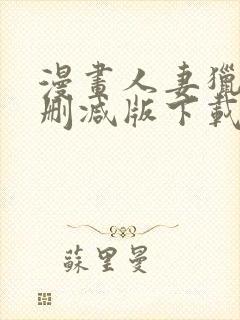 漫畫人妻獵
刪減版下載
蘇里曼